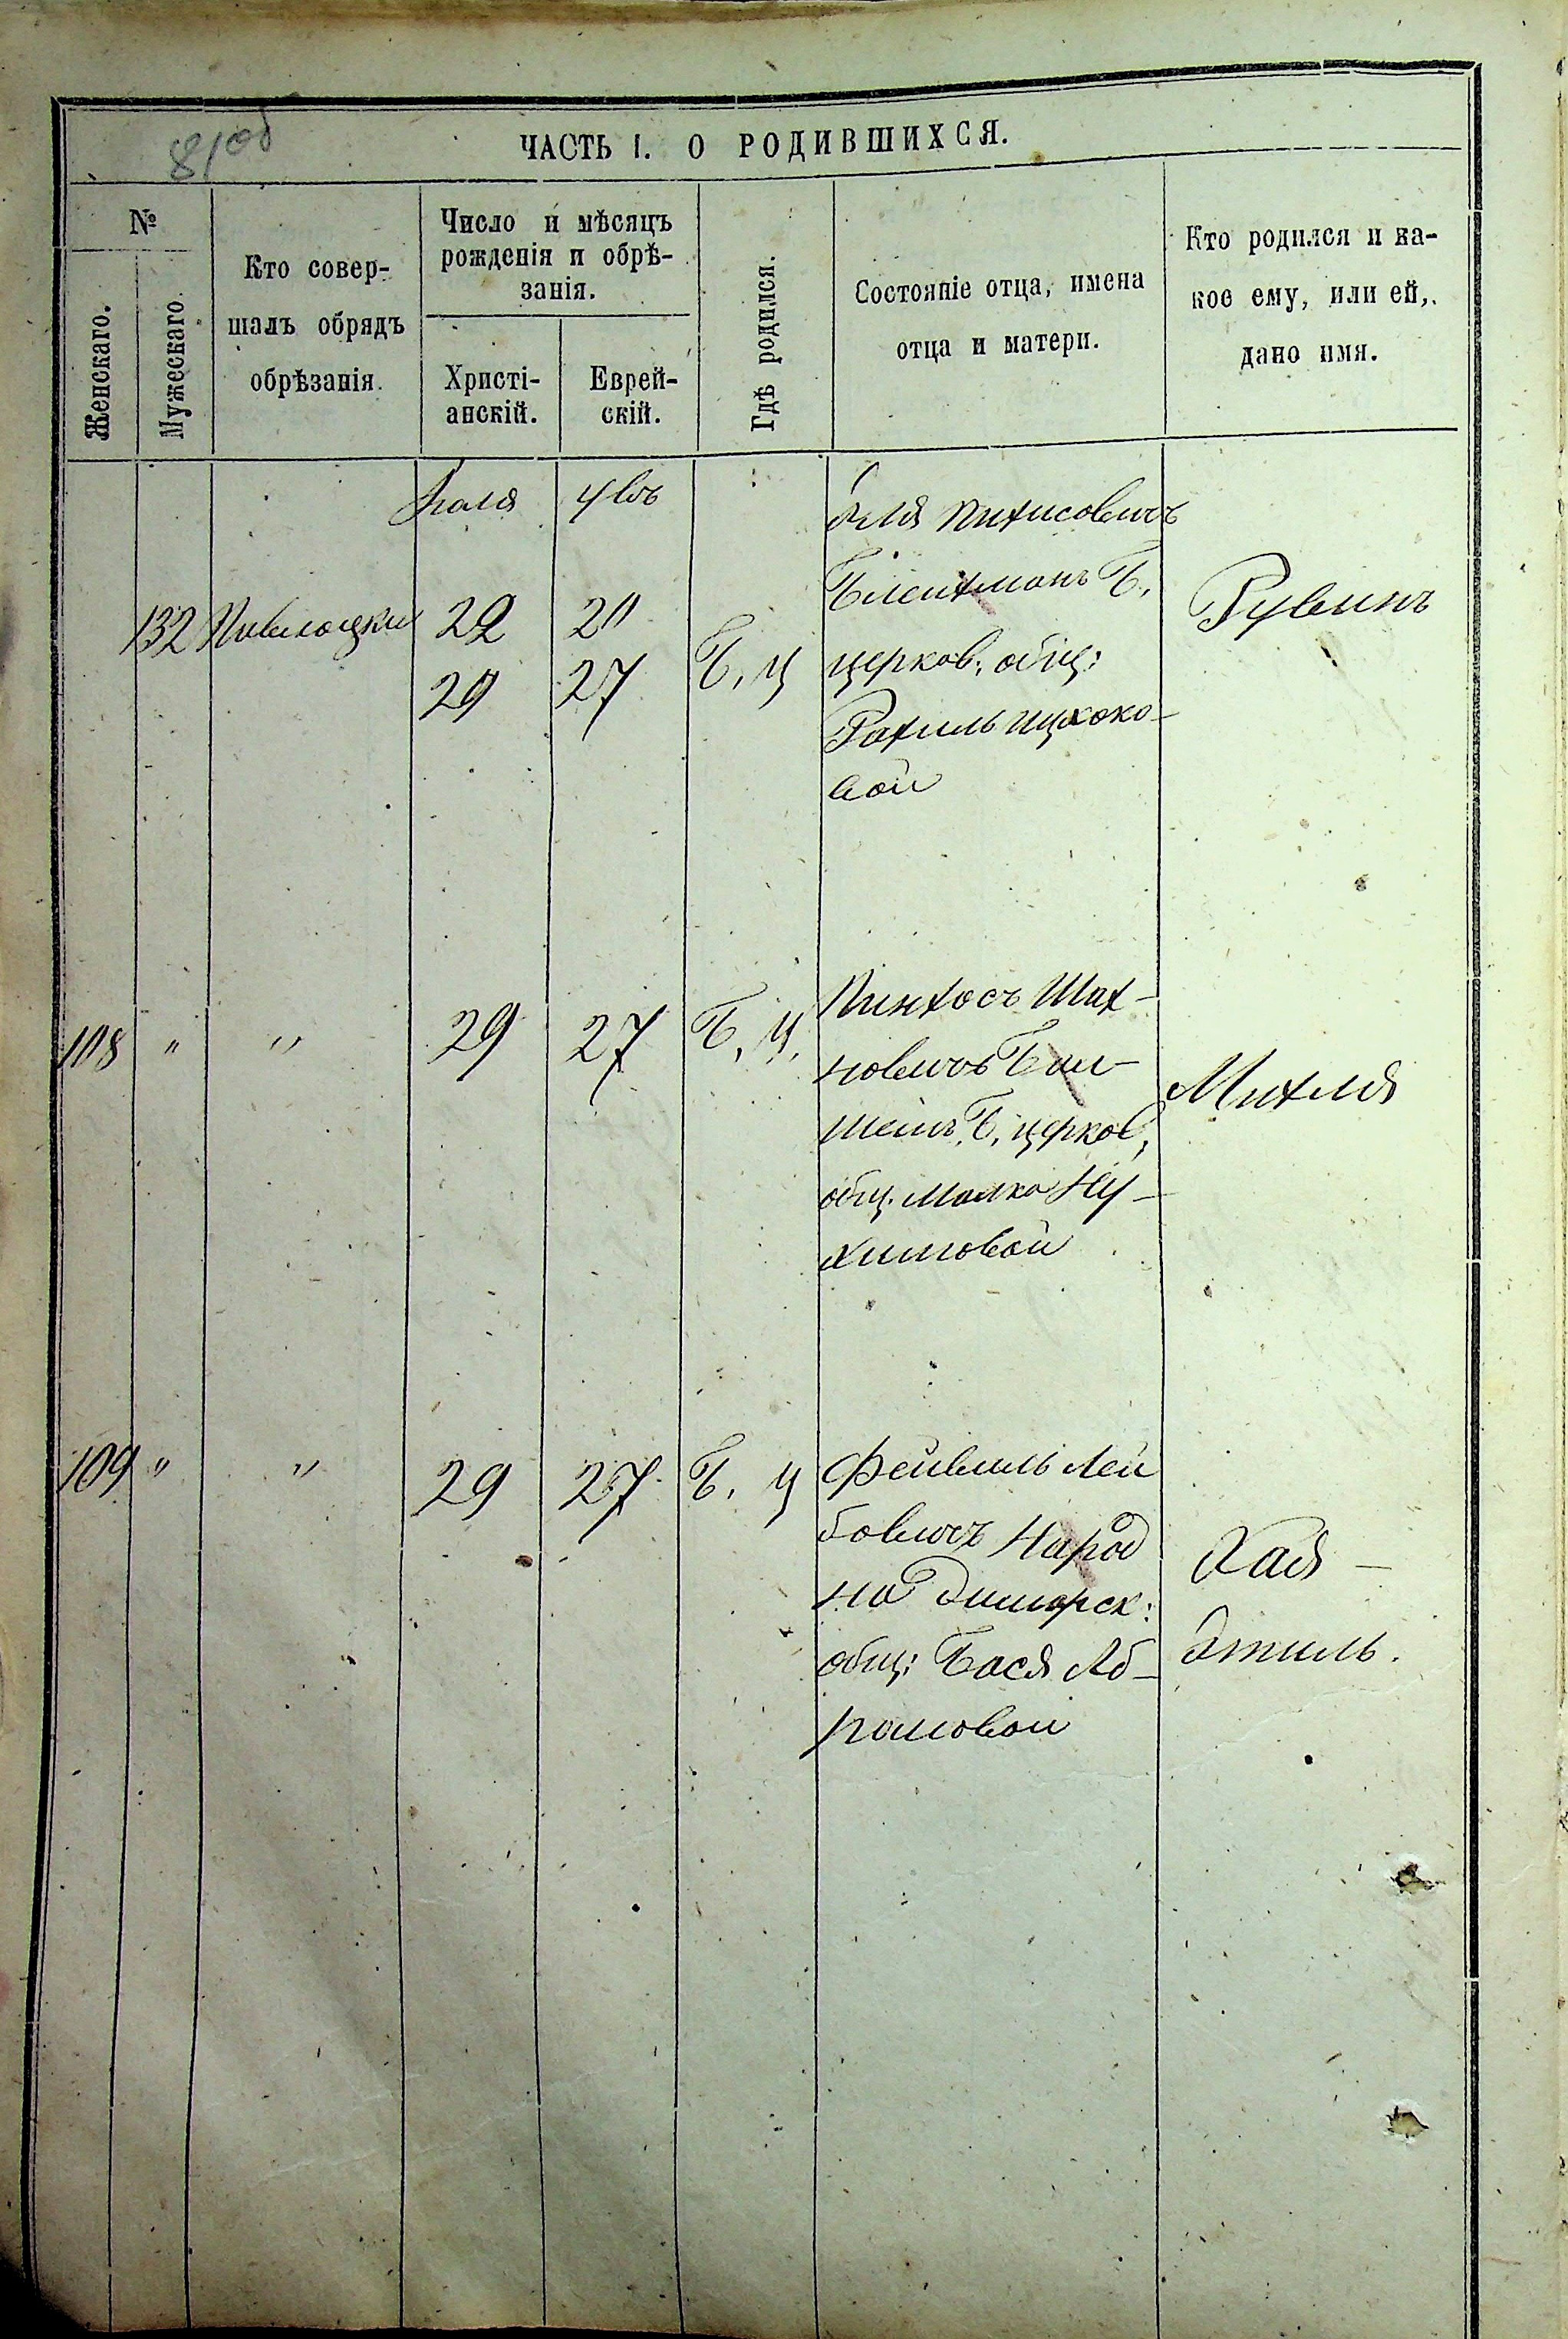 81об
ЧАСТЬ I. О РОДИВШИХСЯ.
№
Женскаго.
Мужескаго
Кто совер-
шалъ обрядъ
обрѣзанія.
Число и мѣсяцъ
рожденія и обрѣ-
занія.
Христі-
анскій.
Еврей-
скій.
Гдѣ родился.
Состояніе отца, имена
отца и матери.
Кто родился и ка-
кое ему, или ей,
дано имя.
132
22 20
29 27
Б, Ц
Пинхисовичъ
Блейхманъ Б,
церков: общ:
Рахиль Ицхоко-
вой
Рувинъ
108 " " 29 27 Б, Ц,
Пинхосъ Шах-
новичъ
Б, церков,
общ. Малка Ну-
химовой
Михля
109 " " 29 27 Б, Ц
Фейвиль Лей
бовичъ Народ
общ: Бася Аб-
рамовой
Хая -
Этиль.